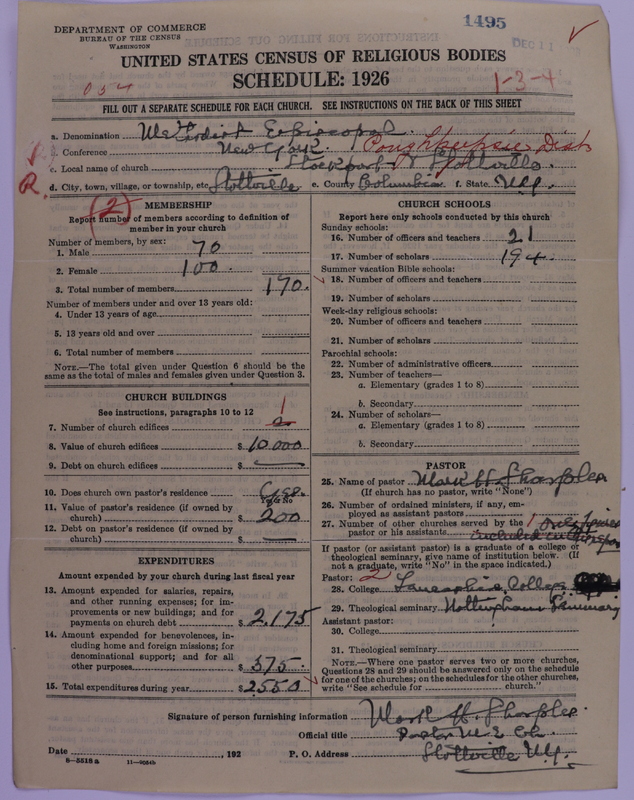 1495
DEC 11
DEPARTMENT OF COMMERCE
BUREAU OF THE CENSUS
WASHINGTON
UNITED STATES CENSUS OF RELIGIOUS BODIES
SCHEDULE: 1926
1-3-4
FILL OUT A SEPARATE SCHEDULE FOR EACH CHURCH. SEE INSTRUCTIONS ON THE BACK OF THIS SHEET
a. Denomination Methodist Episcopal
b. Conference New York Poughkeepsie Dist
c. Local name of church Stockport & Stottville
d. City, town, village, or township, etc. Stottville e. County Columbia f. State N.Y.
(2) MEMBERSHIP
Report number of members according to definition of member in your church
Number of members, by sex:
1. Male 70
2. Female 100
3. Total number of members 170
Number of members under and over 13 years old:
4. Under 13 years of age
5. 13 years old and over
6. Total number of members
NOTE.—The total given under Question 6 should be the same as the total of males and females given under Question 3.
CHURCH BUILDINGS
See instructions, paragraphs 10 to 12
7. Number of church edifices 1 2
8. Value of church edifices $ 10000
9. Debt on church edifices $
10. Does church own pastor's residence Yes
Yes or No
11. Value of pastor's residence (if owned by church) $ 200
12. Debt on pastor's residence (if owned by church) $
EXPENDITURES
Amount expended by your church during last fiscal year
13. Amount expended for salaries, repairs, and other running expenses; for improvements or new buildings; and for payments on church debt $ 2,175
14. Amount expended for benevolences, including home and foreign missions; for denominational support; and for all other purposes $ 375
15. Total expenditures during year $ 2550
CHURCH SCHOOLS
Report here only schools conducted by this church
Sunday schools:
16. Number of officers and teachers 21
17. Number of scholars 194
Summer vacation Bible schools:
18. Number of officers and teachers
19. Number of scholars
Week-day religious schools:
20. Number of officers and teachers
21. Number of scholars
Parochial schools:
22. Number of administrative officers
23. Number of teachers—
a. Elementary (grades 1 to 8)
b. Secondary
24. Number of scholars—
a. Elementary (grades 1 to 8)
b. Secondary
PASTOR
25. Name of pastor Mark H Sharples
(If church has no pastor, write "None")
26. Number of ordained ministers, if any, employed as assistant pastors
27. Number of other churches served by the pastor or his assistants 1 included in this
If pastor (or assistant pastor) is a graduate of a college or theological seminary, give name of institution below. (If not a graduate, write "No" in the space indicated.)
Pastor: 2
28. College Lancashire College
29. Theological seminary Nottingham Seminary
Assistant pastor:
30. College
31. Theological seminary
NOTE.—Where one pastor serves two or more churches, Questions 28 and 29 should be answered only on the schedule for one of the churches; on the schedules for the other churches, write "See schedule for church."
Signature of person furnishing information Mark H. Sharples
Official title Pastor M.E. Ch.
Date , 192 P. O. Address Stottville N.Y.
8—5518 a 11—9054b